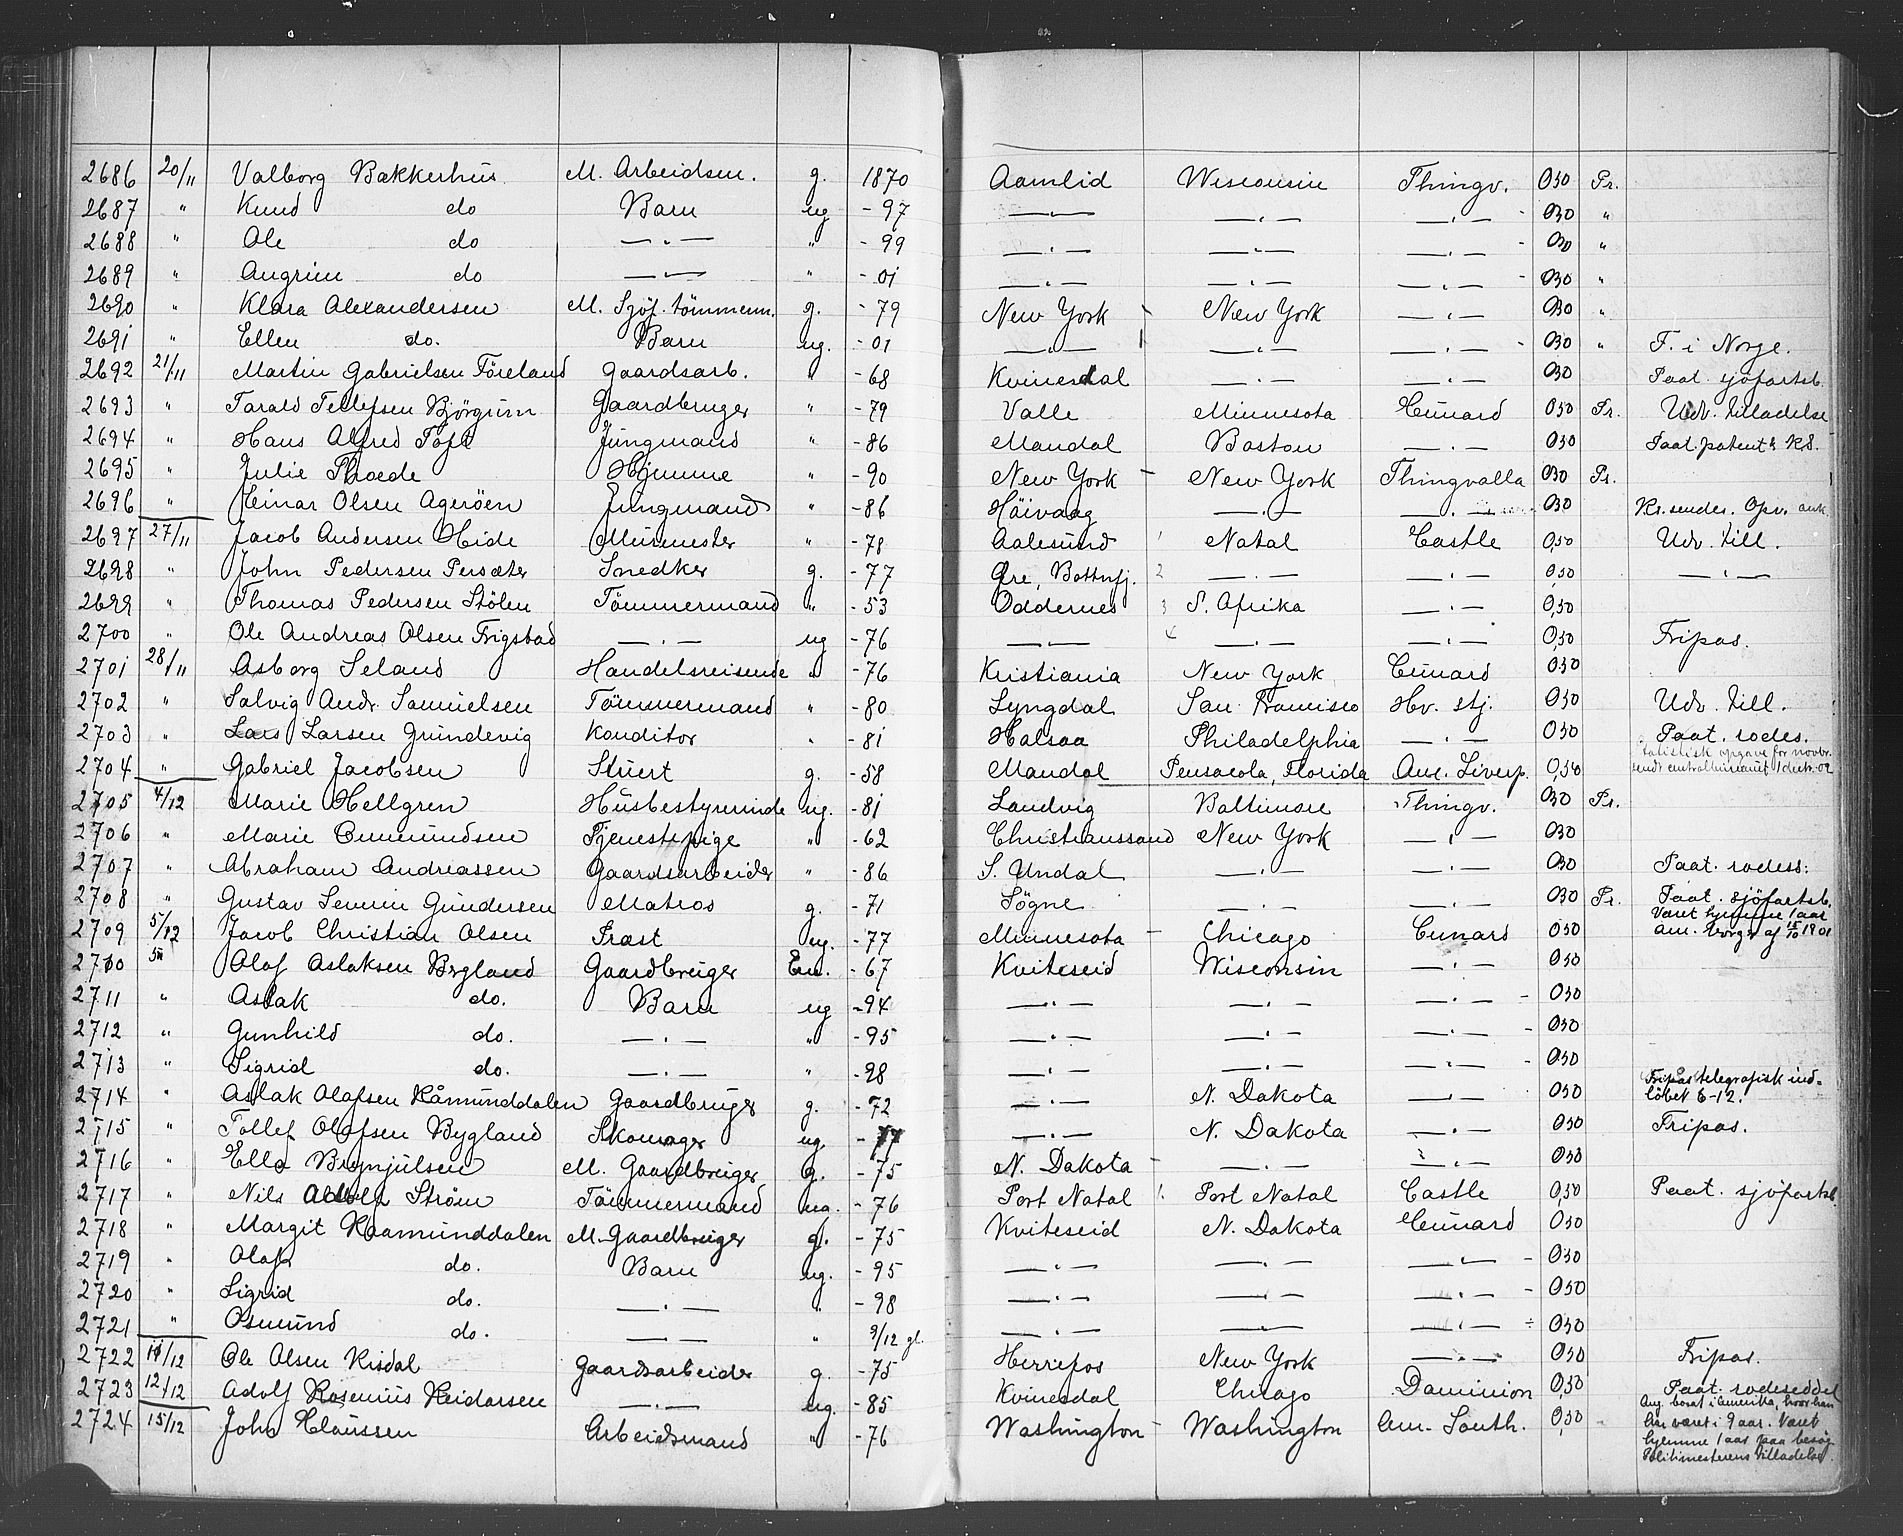 2686 20/11 Valborg Bakkerhus M. Arbeidsm. g. 1870 Aamlid Wisconsin Thingv. 030 Pr.
2687 " Knud do Barn ug - 97 —"— —"— —"— 030 "
2688 " Ole do —"— " - 99 —"— —"— —"— 030 "
2689 " Angrim do —"— " - 01 —"— —"— —"— 030 "
2690 " Klara Alexandersen M. Sjöf. tömmerm. g. - 79 New York - New York —"— 030 "
2691 " Ellen do. Barn ug. - 01 —"— —"— —"— 030 " F. i Norge.
2692 21/11 Martin Gabrielsen Föreland Gaardsarb. " - 68 Kvinesdal —"— —"— 030 Paat. sjöfartsb.
2693 " Tarald Tellefsen Björgum Gaardbruger " - 79 Valle Minnesota Cunard 030 Pr. Udv. tilladelse
2694 " Hans Alfred Toft Jungmand " - 86 Mandal Boston —"— 030 Paat. patent & RS.
2695 " Julie Thoede Hjemme " - 90 New York - New York Thingvalla 030 Pr.
2696 " Einar Olsen Ageröen Jungmand " - 86 Höivaag —"— —"— 030 Kr.sunds. Opv. ank.
2697 27/11 Jacob Andersen Hide Murmester " - 78 Aalesund 1 Natal Castle 0,50 Udv. till.
2698 " John Pedersen Persæter Snedker g. - 77 Öre, Battnfj. 2 —"— —"— 0,50 —"—
2699 " Thomas Pedersen Stölen Tömmermand " - 53 Oddernes 3 S. Afrika —"— 0,50
2700 " Ole Andreas Olsen Frigstad —"— ug - 76 —"— 4 —"— —"— 0,50 Fripas.
2701 28/11 Asborg Seland Handelsreisende " - 76 Kristiania New York Cunard 030
2702 " Salvig Andr. Samuelsen Tömmermand " - 80 Lyngdal San Francisco Hv. stj. 030 Udv. till.
2703 " Lars Larsen Grundevig Konditor " - 81 Halsaa Philadelphia —"— 030 Paat. rodes.
2704 " Gabriel Jacobsen Stuert g. - 58 Mandal Pensacola, Florida Am. Liverp. 0,50 Statistisk opgave for novbr. sendt centralbureauet 1 decbr. 02
2705 4/12 Marie Hellgren Husbestyrinde ug. - 81 Landvig Baltimore Thingv. 030 Pr.
2706 " Marie Ommundsen Tjenestepige " - 62 Christianssand New York —"— 030
2707 " Abraham Andreassen Gaardsarbeider " - 86 S. Undal —"— —"— 030 Paat. rodess.
2708 " Gustav Severin Gundersen Matros g. - 71 Sögne —"— —"— 030 Pr. Paat. sjöfartsb.
2709 5/12 Jacob Christian Olsen Præst ug. - 77 Minnesota - Chicago Cunard 030 Været hjemme 1 aar am. borger af 15/10 1901
2710 5/12 Olaf Aslaksen Bygland Gaardbruger Em. - 67 Kviteseid Wisconsin —"— 030
2711 " Aslak do. Barn ug - 94 —"— —"— —"— - 030
2712 " Gunhild do. —"— " - 95 —"— —"— —"— - 030
2713 " Sigrid do. —"— " - 98 —"— —"— —"— - 030
2714 " Aslak Olafsen Råmunddalen Gaardbruger g. - 72 —"— N. Dakota —"— 030 Fripas telegrafisk indlöbet 6-12.
2715 " Tollef Olafsen Bygland Skomager ug. - 77 —"— N. Dakota —"— 030 Fripas.
2716 " Ella Brynjulsen M. Gaardbruger g. - 75 N. Dakota - —"— —"— 030
2717 " Nils Adolf Ström Tömmermand ug. - 76 Port Natal 1. Port Natal Castle 0,50 Paat. sjöfartsb.
2718 " Margit Raamunddalen M. Gaardbruger g. - 75 Kviteseid N. Dakota Cunard 030
2719 " Olaf do. Barn ug. - 95 —"— —"— —"— - 030
2720 " Sigrid do. —"— " - 98 —"— —"— —"— - 030
2721 " Osmund do. —"— " 9/12 gl. —"— —"— —"— 030
2722 11/12 Ole Olsen Risdal Gaardsarbeider g. - 75 Herrefos New York —"— 030 Fripas.
2723 12/12 Adolf Rosenius Reidarsen —"— ug. - 85 Kvinesdal Chicago Dominion 0,50 Paat. rodeseddel
2724 15/12 John Claussen Arbeidsmand " - 76 Washington - Washington Am. South. 0,50 Ang. bosat i Amerika, hvor han har været i 9 aar. Været hjemme 1 aar paa besög. Politimesterens tilladelse.